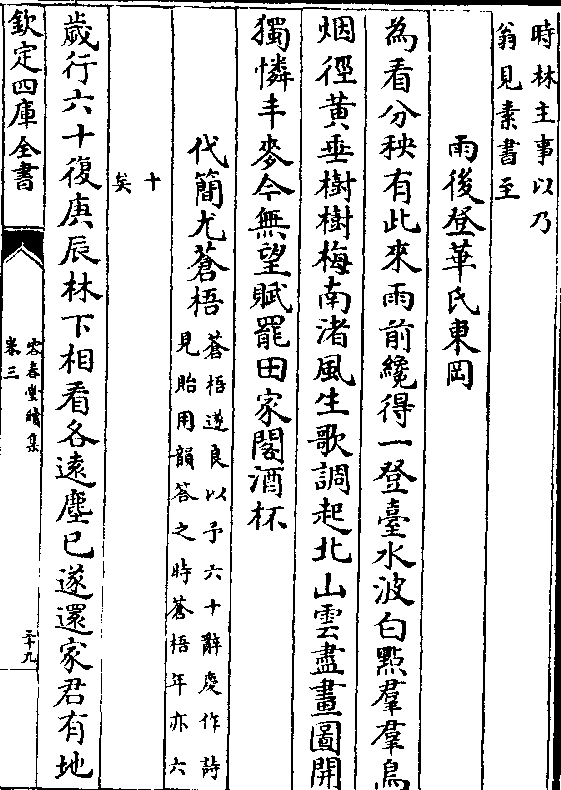 時林主事以乃
翁見素書至
雨後登華氏東岡
為看分秧有此來雨前纔得一登臺水波白點羣羣鳥
烟徑黄垂樹樹梅南渚風生歌調起北山雲盡畫圖開
獨憐丰麥今無望賦罷田家閣酒杯
代簡尤蒼梧
蒼梧遂良以予六十辭慶作詩
見貽用韻答之時蒼梧年亦六
十
矣
歲行六十復庚辰林下相看各遠塵已遂還家君有地
欽定四庫全書
容春堂續集
卷三
二十九